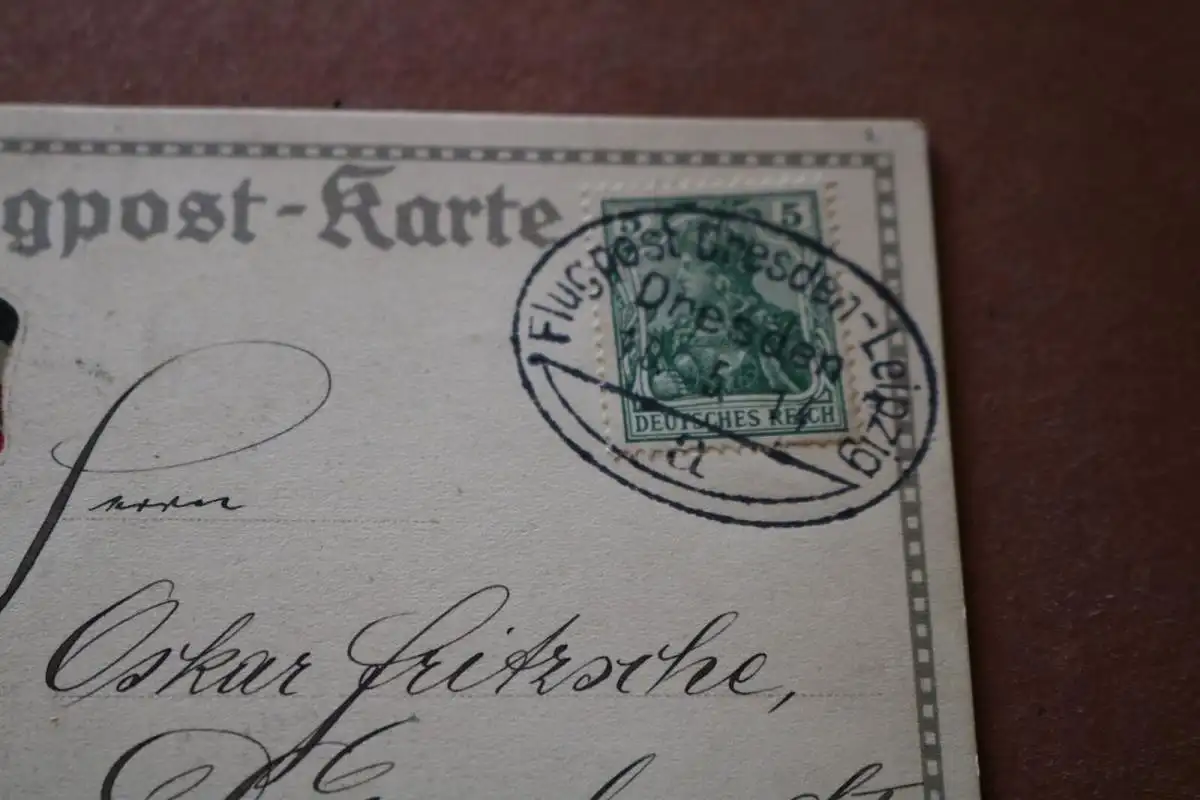 gpost-Karte
5 5
Flugpost Dresden-Leipzig
Dresden
18 5 14
a
DEUTSCHES REICH
Herrn
Oskar Fritzsche,